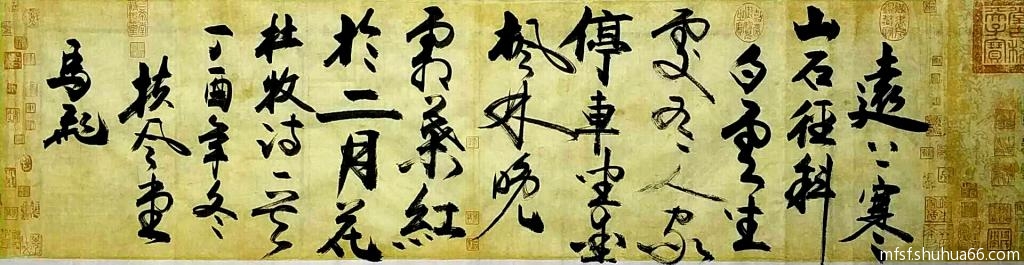 遠上寒
山石径斜
白雲生
處有人家
停車坐爱
枫林晚
霜葉紅
於二月花
杜牧诗一首
丁酉年冬
扶风堂
馬
mfsf.shuhua66.com